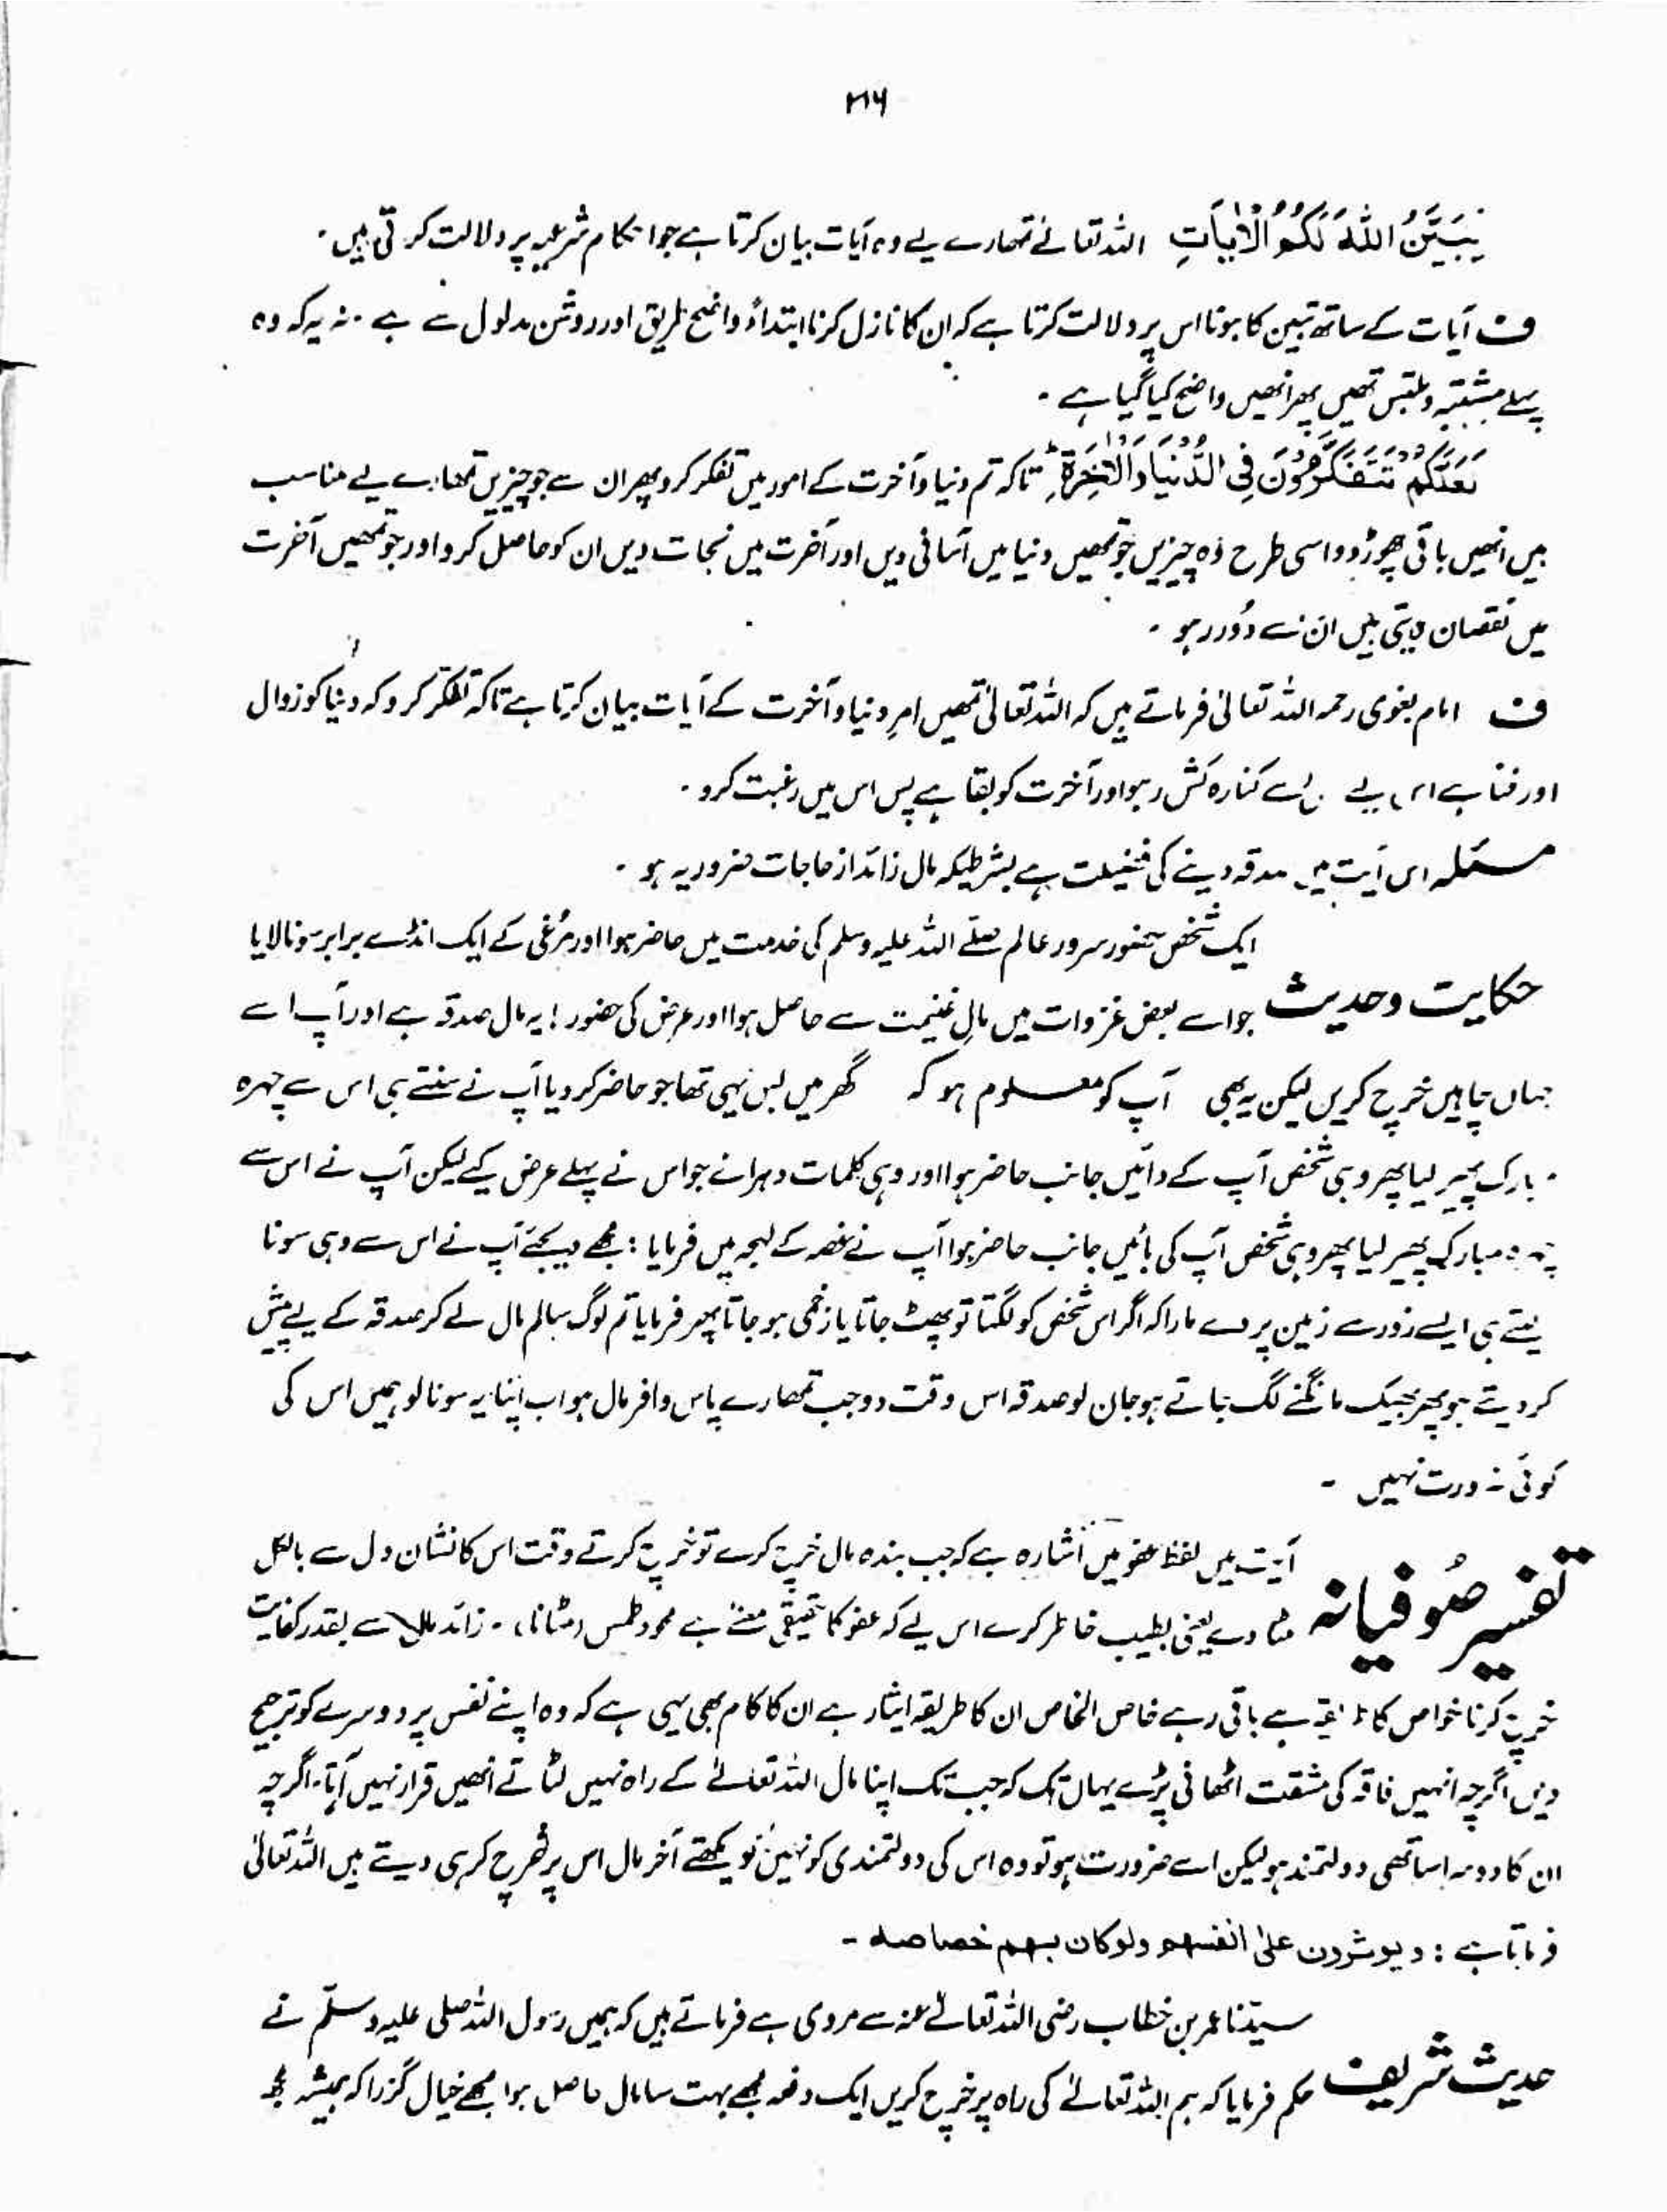 ۲۱۶
یُبَیِّنُ اللّٰہُ لَکُمُ الْاٰیٰاتِ اللہ تعالےٰ تمھارے لیے وہ آیات بیان کرتا ہے جو احکام شرعیہ پر دلالت کرتی ہیں۔
ف آیات کے ساتھ تبیین کا ہونا اس پر دلالت کرتا ہے کہ ان کا نازل کرنا ابتداءً واضح طریق اور روشن مدلول سے ہے ۔ نہ یہ کہ وہ
پہلے مشتبہ و ملتبس تھیں پھر انھیں واضح کیا گیا ہے ۔
لَعَلَّکُمْ تَتَفَکَّرُوْنَ فِی الدُّنْیَا وَالْاٰخِرَۃِ ؕ تاکہ تم دنیا و آخرت کے امور میں تفکر کرو پھر ان سے جو چیزیں تمھارے لیے مناسب
ہیں انھیں باقی چھوڑو اسی طرح وُہ چیزیں جو تمھیں دنیا میں آسانی دیں اور آخرت میں نجات دیں ان کو حاصل کرو اور جو تمھیں آخرت
میں نقصان دیتی ہیں ان سے دُور رہو ۔
ف امام بغوی رحمہ اللہ تعالیٰ فرماتے ہیں کہ اللہ تعالیٰ تمھیں امرِ دنیا و آخرت کے آیات بیان کرتا ہے تاکہ تفکر کرو کہ دنیا کو زوال
اور فنا ہے اس لیے اس سے کنارہ کش رہو اور آخرت کو بقا ہے پس اس میں رغبت کرو ۔
مسئلہ اس آیت میں صدقہ دینے کی فضیلت ہے بشرطیکہ مال زائد از حاجات ضروریہ ہو ۔
ایک شخص حضور سرور عالم صلے اللہ علیہ وسلم کی خدمت میں حاضر ہوا اور مُرغی کے ایک انڈے برابر سونا لایا
حکایت و حدیث جو اسے بعض غزوات میں مالِ غنیمت سے حاصل ہوا اور عرض کی حضور ! یہ مال صدقہ ہے اور آپ اسے
جہاں چاہیں خرچ کریں لیکن یہ بھی آپ کو معلوم ہو کہ گھر میں بس یہی تھا جو حاضر کر دیا آپ نے سنتے ہی اس سے چہرہ
مبارک پھیر لیا پھر وہی شخص آپ کے دائیں جانب حاضر ہوا اور وہی کلمات دہرائے جو اس نے پہلے عرض کیے لیکن آپ نے اس سے
چہرہ مبارک پھیر لیا پھر وہی شخص آپ کی بائیں جانب حاضر ہوا آپ نے غصہ کے لہجہ میں فرمایا : مجھے دیجئے آپ نے اس سے وہی سونا
لیتے ہی ایسے زور سے زمین پر دے مارا کہ اگر اس شخص کو لگتا تو پھٹ جاتا یا زخمی ہو جاتا پھر فرمایا تم لوگ سالم مال لے کر صدقہ کے لیے پیش
کر دیتے ہو پھر بھیک مانگنے لگ جاتے ہو جان لو صدقہ اس وقت دو جب تمھارے پاس وافر مال ہو اب اپنا یہ سونا لو ہمیں اس کی
کوئی ضرورت نہیں ۔
آیت میں لفظ عفو میں اشارہ ہے کہ جب بندہ مال خرچ کرے تو خرچ کرتے وقت اس کا نشان دل سے بالکل
تفسیر صُوفیانہ مٹا دے یعنی بطیب خاطر کرے اس لیے کہ عفو کا حقیقی معنےٰ ہے محو و طمس (مٹانا) ۔ زائد مال سے بقدر کفایت
خرچ کرنا خواص کا طریقہ ہے باقی رہے خاص الخاص ان کا طریقہ ایثار ہے ان کا کام بھی یہی ہے کہ وہ اپنے نفس پر دوسرے کو ترجیح
دیں اگرچہ انہیں فاقہ کی مشقت اٹھانی پڑے یہاں تک کہ جب تک اپنا مال اللہ تعالےٰ کے راہ نہیں لٹاتے انھیں قرار نہیں آتا۔ اگرچہ
ان کا دوسرا ساتھی دولتمند ہو لیکن اسے ضرورت ہو تو وہ اس کی دولتمندی کو نہیں دیکھتے آخر مال اس پر خرچ کر ہی دیتے ہیں اللہ تعالیٰ
فرماتا ہے : ویوثرون علیٰ انفسھم ولو کان بھم خصاصہ ۔
سیّدنا عمر بن خطاب رضی اللہ تعالےٰ عنہ سے مروی ہے فرماتے ہیں کہ ہمیں رسول اللہ صلی علیہ وسلّم نے
حدیث شریف حکم فرمایا کہ ہم اللہ تعالےٰ کی راہ پر خرچ کریں ایک دفعہ مجھے بہت سا مال حاصل ہوا مجھے خیال گزرا کہ ہمیشہ مجھ